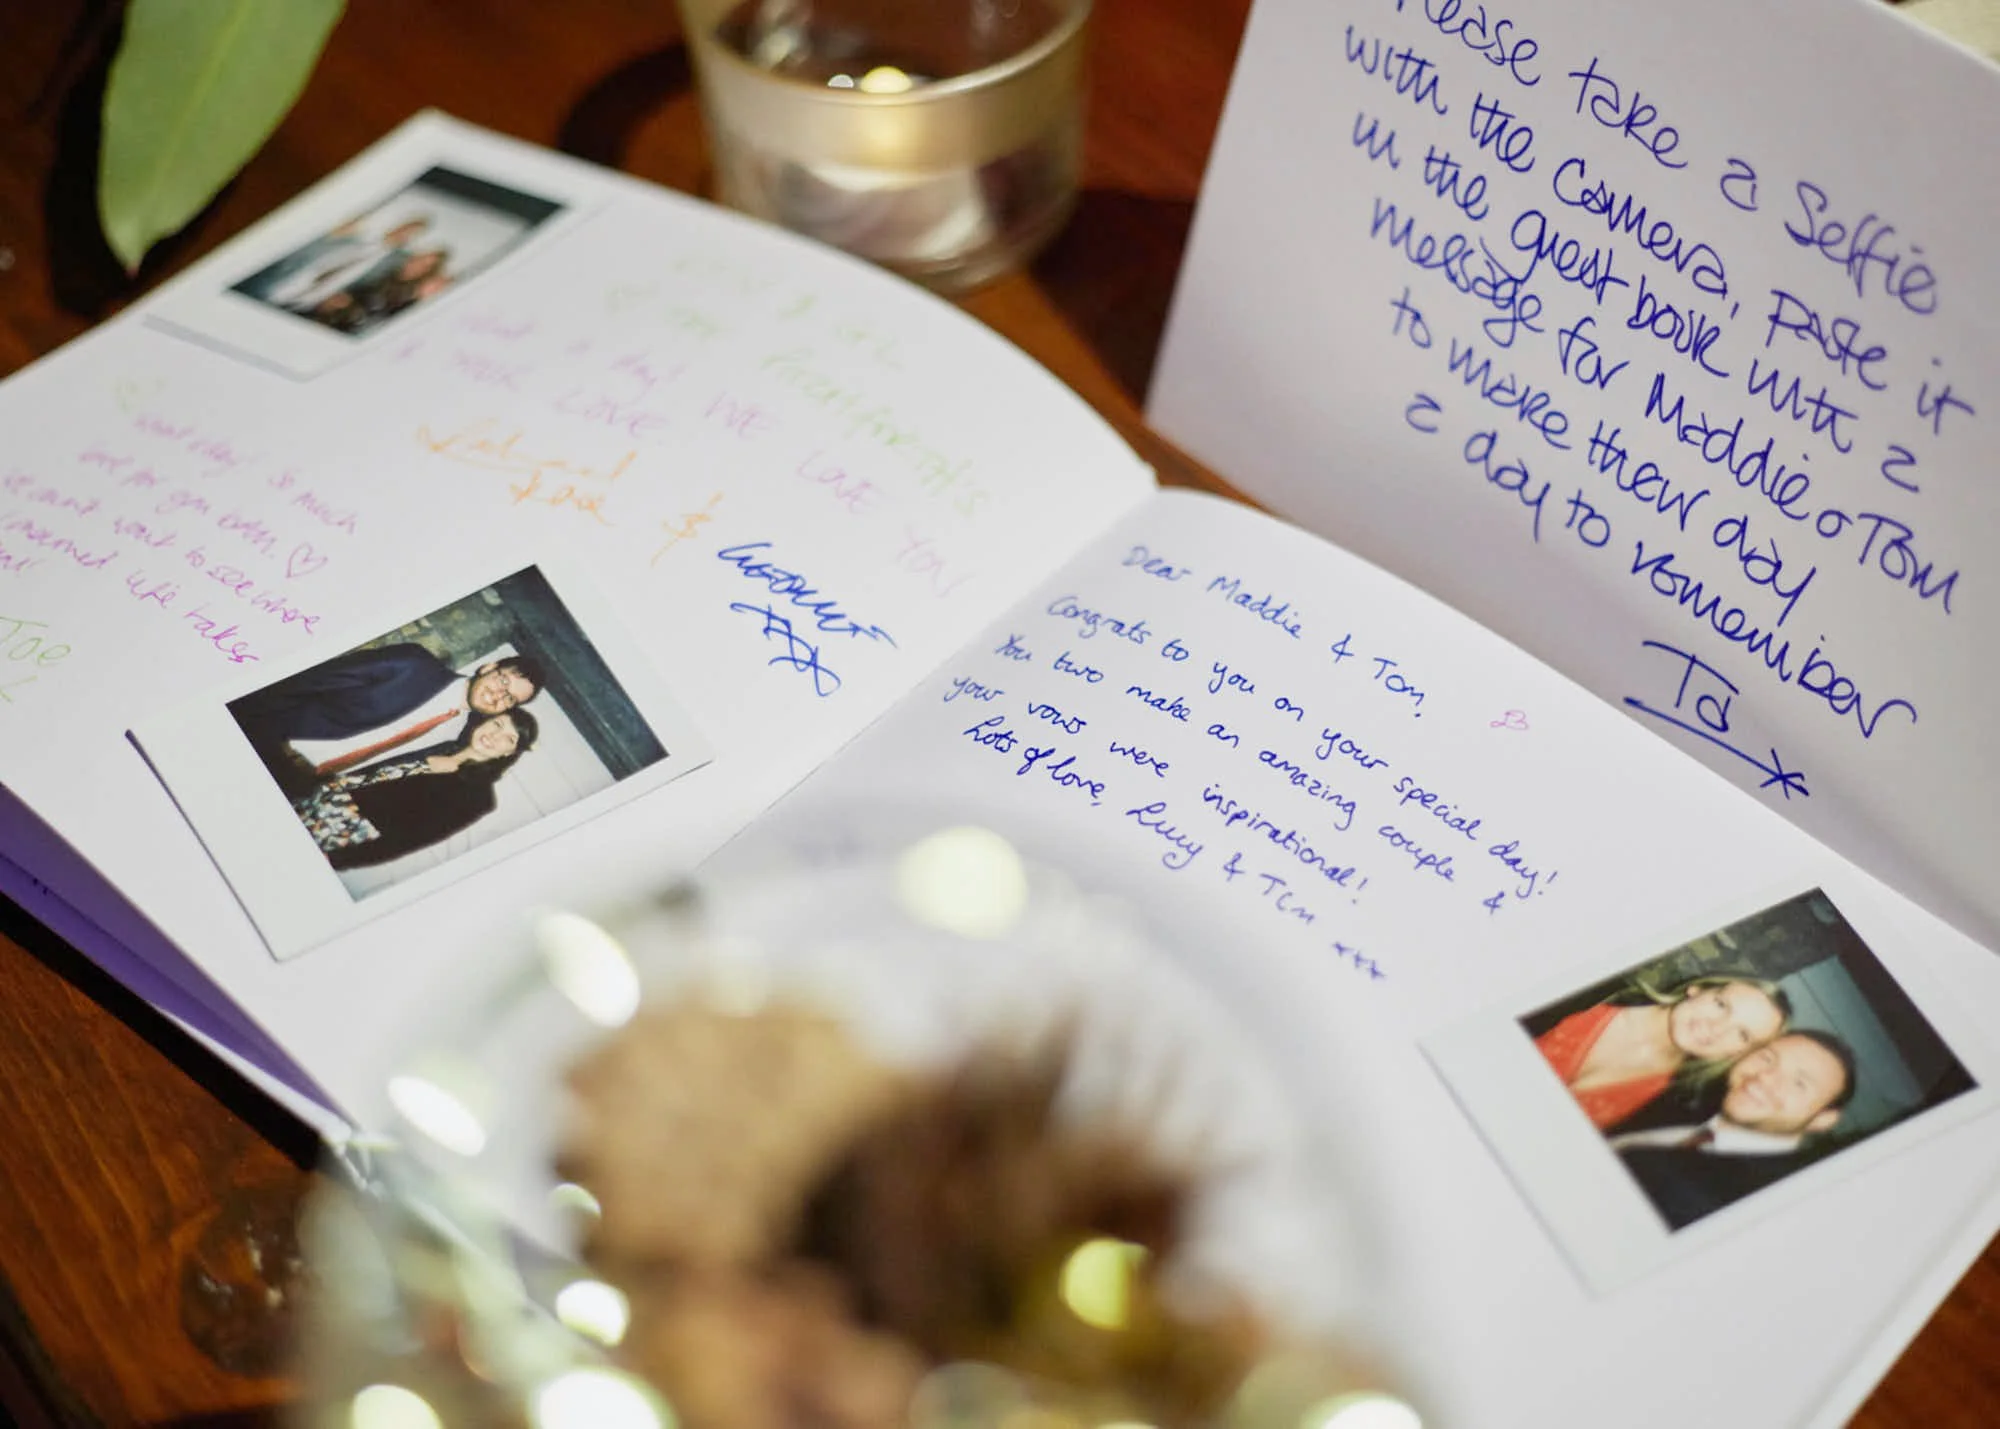 Please take a Selfie
with the camera, Paste it
in the guest book with a
message for Maddie & Tom
to make their day
a day to remember
Ta
What a day! WE LOVE YOU
LOVE
&
What a day! So much
love for you both. ♡
we can't wait to see where
married life takes
Joe
Dear Maddie & Tom,
Congrats to you on your special day!
You two make an amazing couple &
your vows were inspirational!
Lots of love, Lucy & Tom xxx